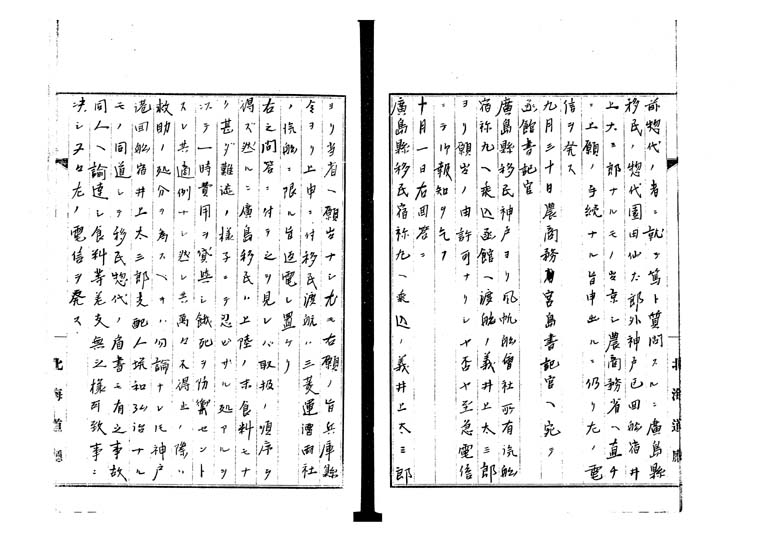 前惣代ノ者ニ就テ篤ト質問スルニ廣島縣
移民ノ惣代園田仙太郎外神戸已回船宿井
上太三郎ナルモノ出京シ農商務省ヘ直チ
ニ上願ノ手続ナル旨申出ルニ仍リ左ノ電
信ヲ発ス
九月三十日農商務省宮島書記官ヘ宛
函館書記官
廣島縣移民神戸ヨリ風帆船會社所有汽船
宿祢丸ヘ乗込函館ヘ渡航ノ義井上太三郎
ヨリ願出ノ由許可ナリシヤ否ヤ至急電信
ニテ御報知ヲ乞フ
十月一日右回答ニ
廣島縣移民宿祢丸ヘ乗込ノ義井上太三郎
ヨリ当省ヘ願出ナシ尤モ右願ノ旨兵庫縣
令ヨリ上申ニ付移民渡航ハ三菱運漕両社
ノ汽船ニ限ル旨返電シ置ケリ
右之問答ニ付テ之ヲ見レバ取扱ノ順序ヲ
得ズ然ルニ廣島移民ハ上陸ノ末食料モナ
ク甚ダ難渋ノ様子ニテ忍ビザル処アルヲ
以テ一時費用ヲ貸与シ餓死ヲ防禦セント
スレ共適例ナシ然レ共萬々不得止ノ際ハ
救助ノ処分ヲ為スベキハ勿論ナレドモ神戸
港回船宿井上太三郎支配人垪和弘治ナル
モノ同道シテ移民惣代ノ肩書モ有之事故
同人ヘ論達シ食料等差支無之様可致事ニ
决シ又々左ノ電信ヲ発ス
北海道廳
北海道廳